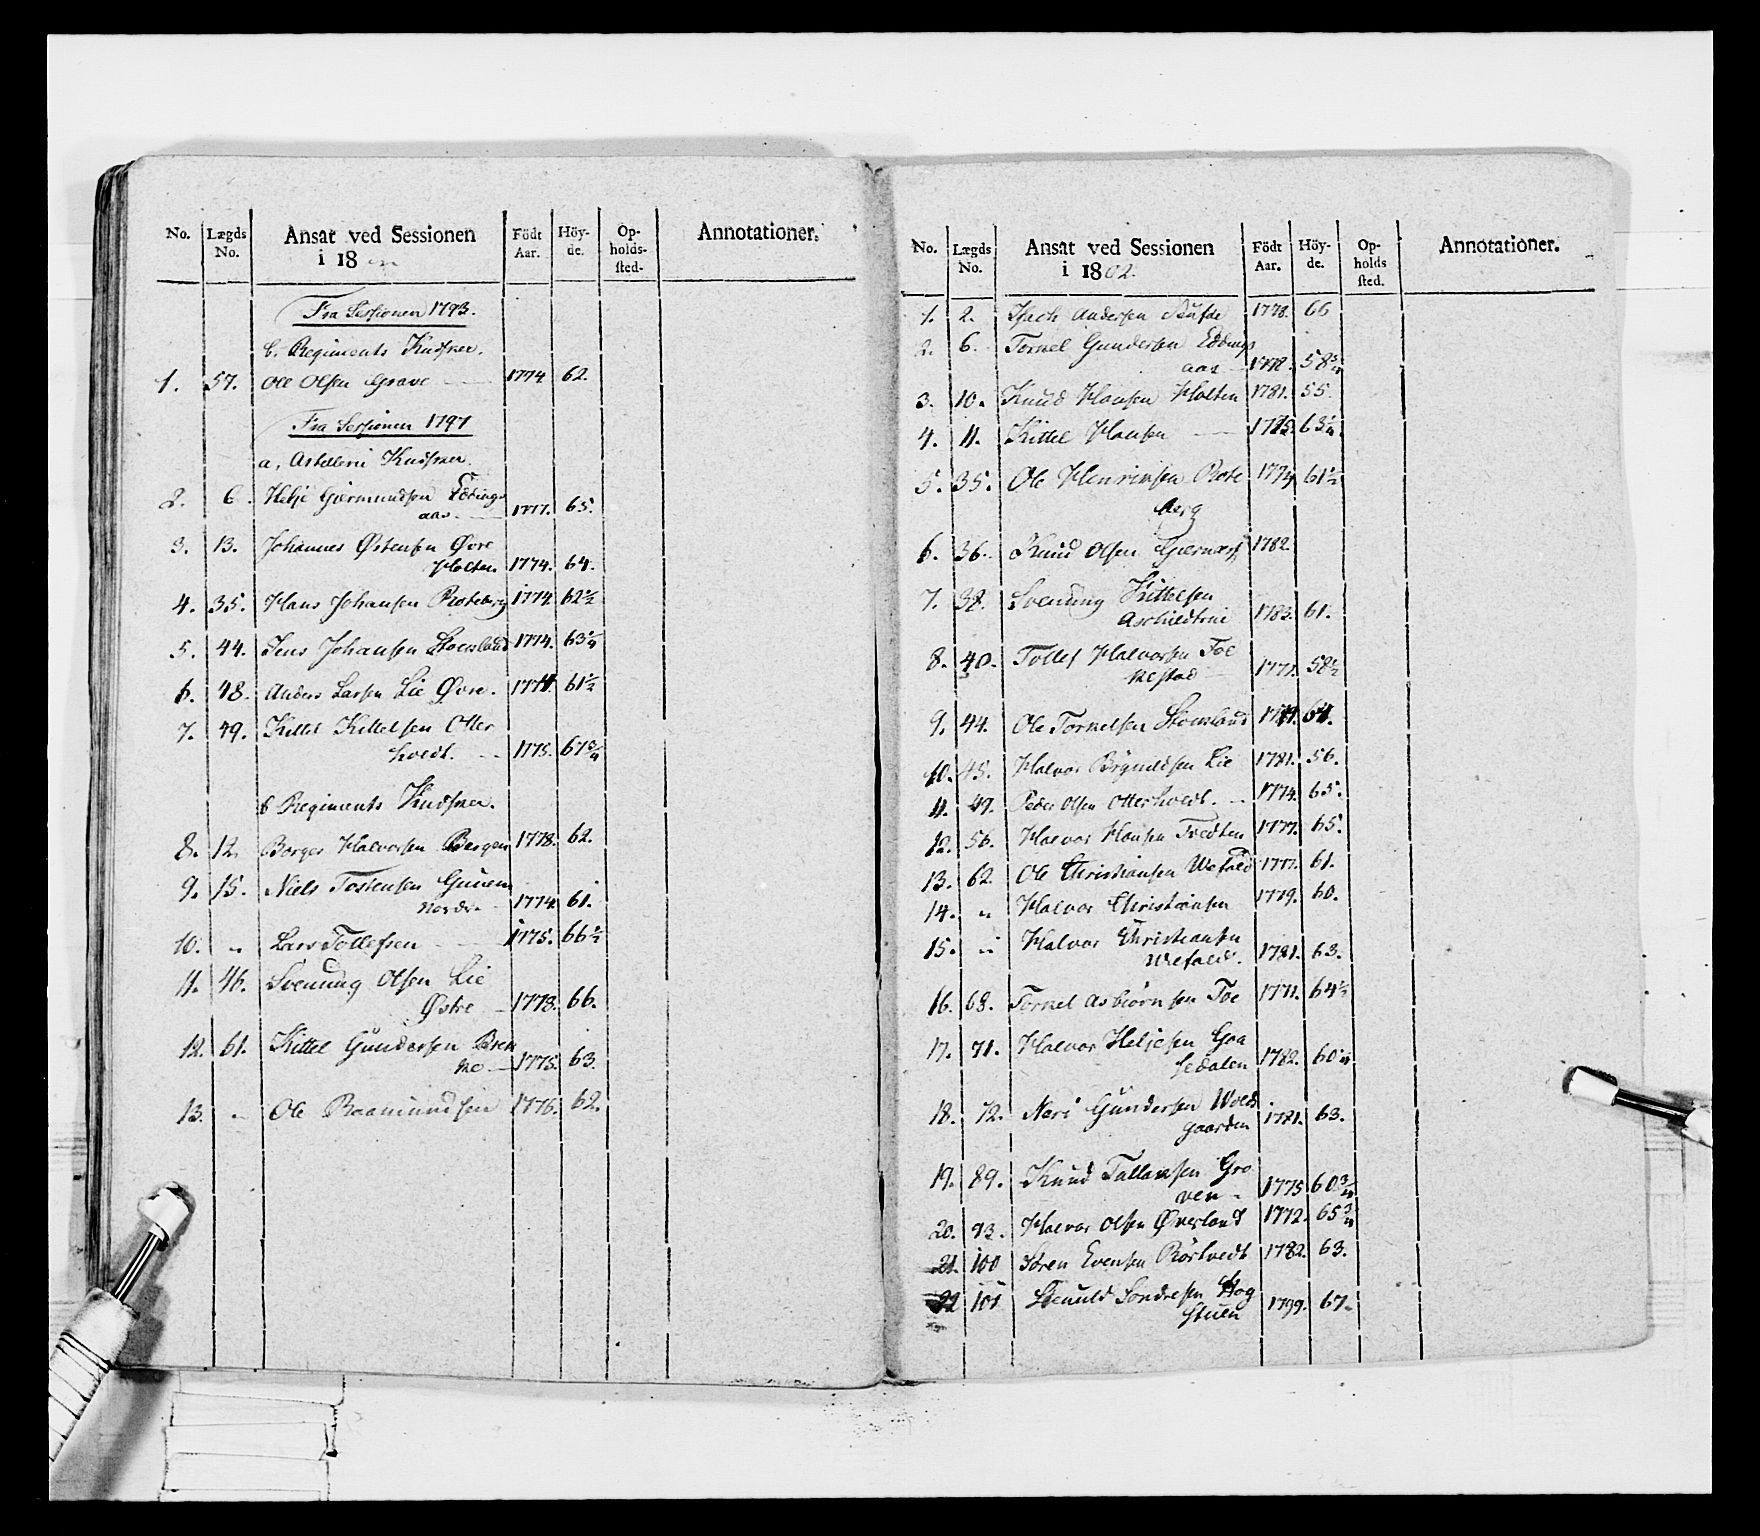 No. Lægds No. Ansat ved Sessionen i 18 Födt Aar. Höy- de. Op- holds- sted. Annotationer.
Fra Sessionen 1793.
b. Regiments Kudsker.
1. 57. Ole Olsen Grave 1774. 62.
Fra Sessionen 1797
a, Artelleri Kudsker.
2. 6. Helje Giermundsen Eddings
aas 1777. 65.
3. 13. Johannes Østensen Øvre
Holten 1774. 64.
4. 35. Hans Johansen Roteberg 1774. 62½
5. 44. Jens Johansen Stoesland 1774. 63¼
6. 48. Anders Larsen Lie Øvre. 1774. 61½
7. 49. Kittel Kittelsen Otter
hvedt. 1775. 67¾
b Regiments Kudsker.
8. 12. Borger Halvorsen Bergen 1778. 62.
9. 15. Niels Tostensen Gunem
Nordre 1774. 61.
10. " Lars Tollefsen 1775. 66½
11. 46. Svenung Olsen Lie
Østre 1778. 66.
12. 61. Kittel Gundersen Brek
ke 1775. 63.
13. " Ole Raamundsen 1776. 62.
No. Lægds No. Ansat ved Sessionen i 1802. Födt Aar. Höy- de. Op- holds sted. Annotationer.
1. 2. Isach Andersen 1778. 66
2. 6. Torkel Gundersen Eddings
aas 1778. 58¾
3. 10. Knud Hansen Holten 1781. 55.
4. 11. Kittel Hansen 63¼
5. 35. Ole Henriksen Rote
berg 1774 61½
6. 36. Knud Olsen 1782.
7. 38. Svenung Kittelsen
1783. 61.
8. 40. Tollef Halvorsen Toe
kestad 1777. 58½
9. 44. Ole Torkelsen Stoesland 64.
10. 45. Halvor Brynildsen Lie 1781. 56.
11. 49. Peder Olsen Otterhvedt. 1774. 65.
12. 56. Halvor Hansen Tvedten 1777. 65.
13. 62. Ole Christiansen Wefald 1777. 61.
14. " Halvor Christiansen 1779. 60.
15. " Halvor Christiansen
Wefald. 1781. 63.
16. 68. Torkel Asbiørnsen Toe 1771. 64½
17. 71. Halvor Heljesen Gaa
sedalen 1782. 60¼
18. 72. Neri Gundersen Wolds
gaarden 1781. 63.
19. 89. Knud Tallaksen Gro
ven 1775 60¾
20. 93. Halvor Olsen Øverland 1772. 65¾
21. 100 Sören Evensen Rörhvedt 1782. 63.
22 101 Stenuld Sondresen Hog
stuen 1799. 67.